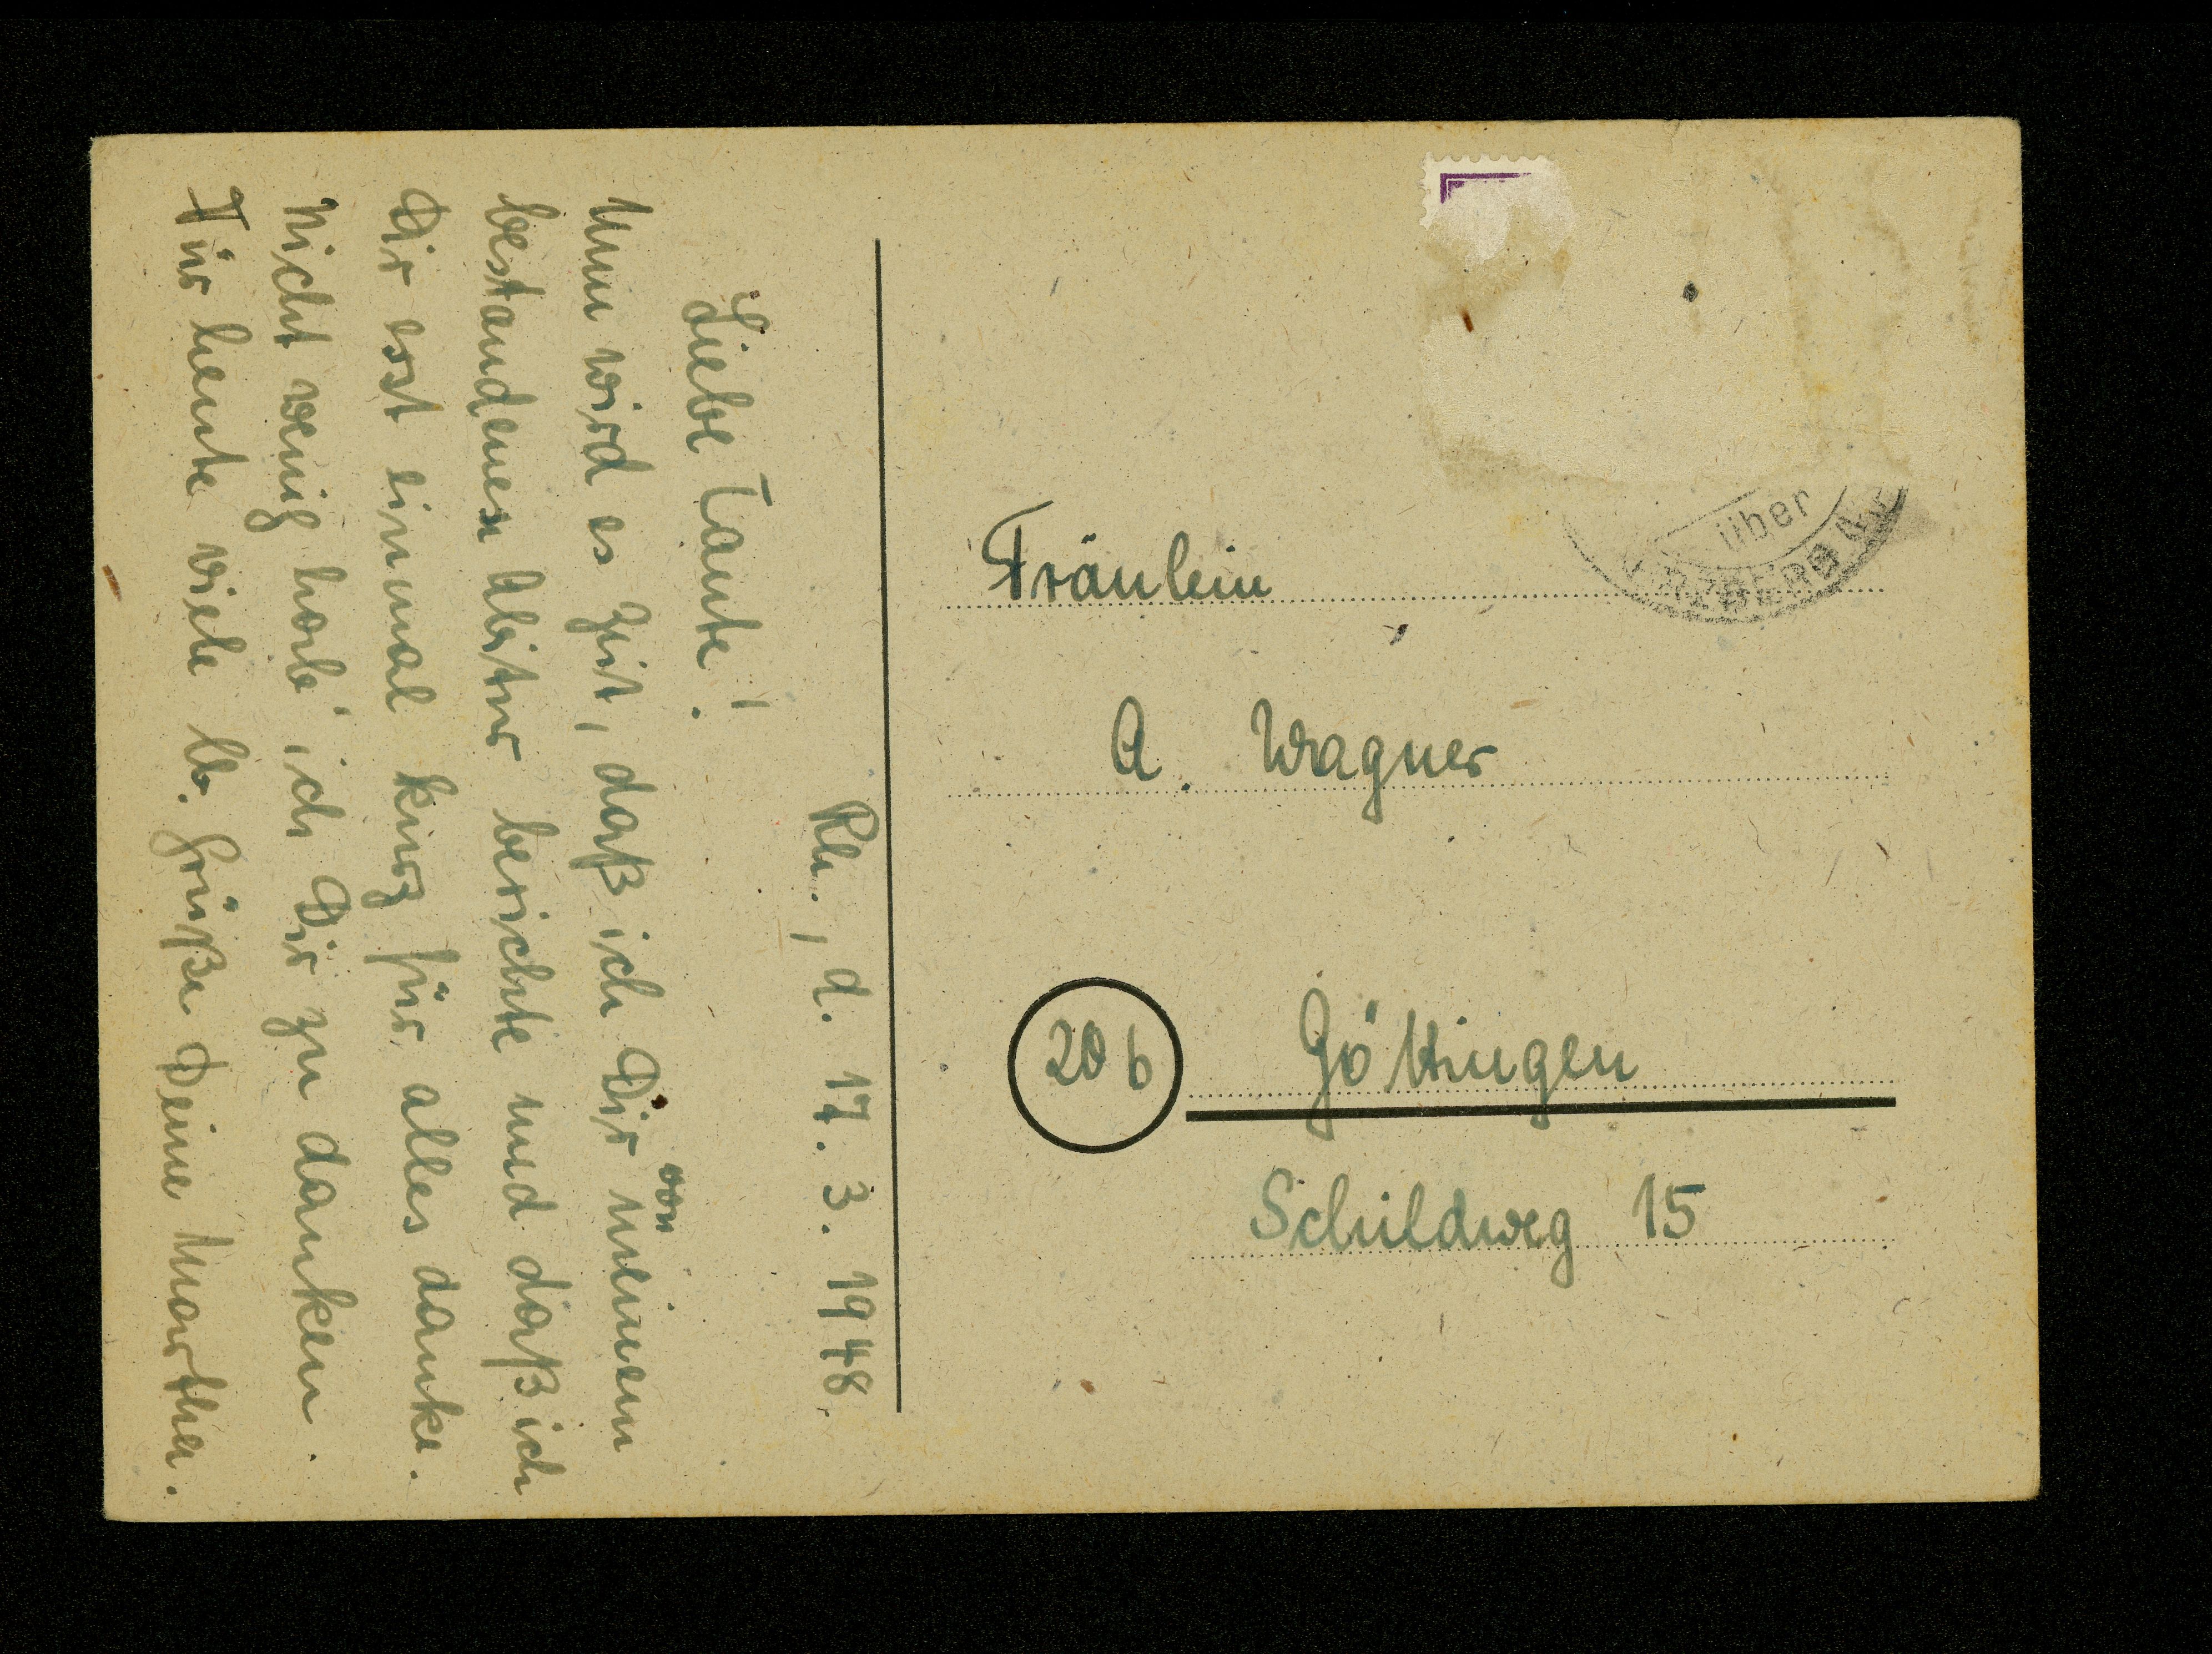 Rh., d. 17. 3. 1948.
Liebe Tante!
Nun wird es Zeit, daß ich Dir von meinem
bestandenen Abitur berichte und daß ich
Dir erst einmal kurz für alles danke.
Nicht wenig hab' ich Dir zu danken.
Für heute viele lb. Grüße Deine Martha.
über
Fräulein
A. Wagner
20 b Göttingen
Schildweg 15